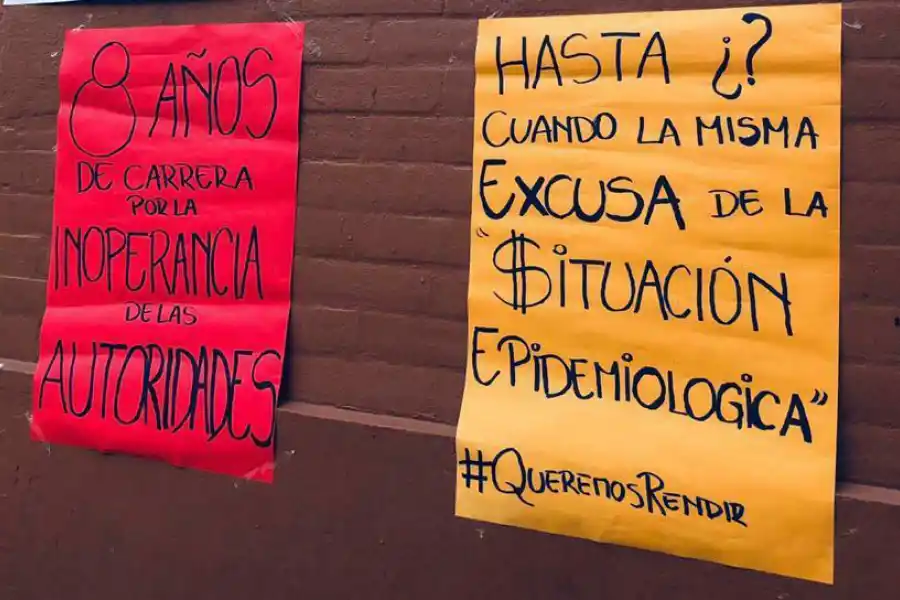 8 AÑOS
DE CARRERA
POR LA
INOPERANCIA
DE LAS
AUTORIDADES
HASTA ¿?
CUANDO LA MISMA
EXCUSA DE LA
"$ITUACIÓN
EPIDEMIOLOGICA"
#QUEREMOSRENDIR